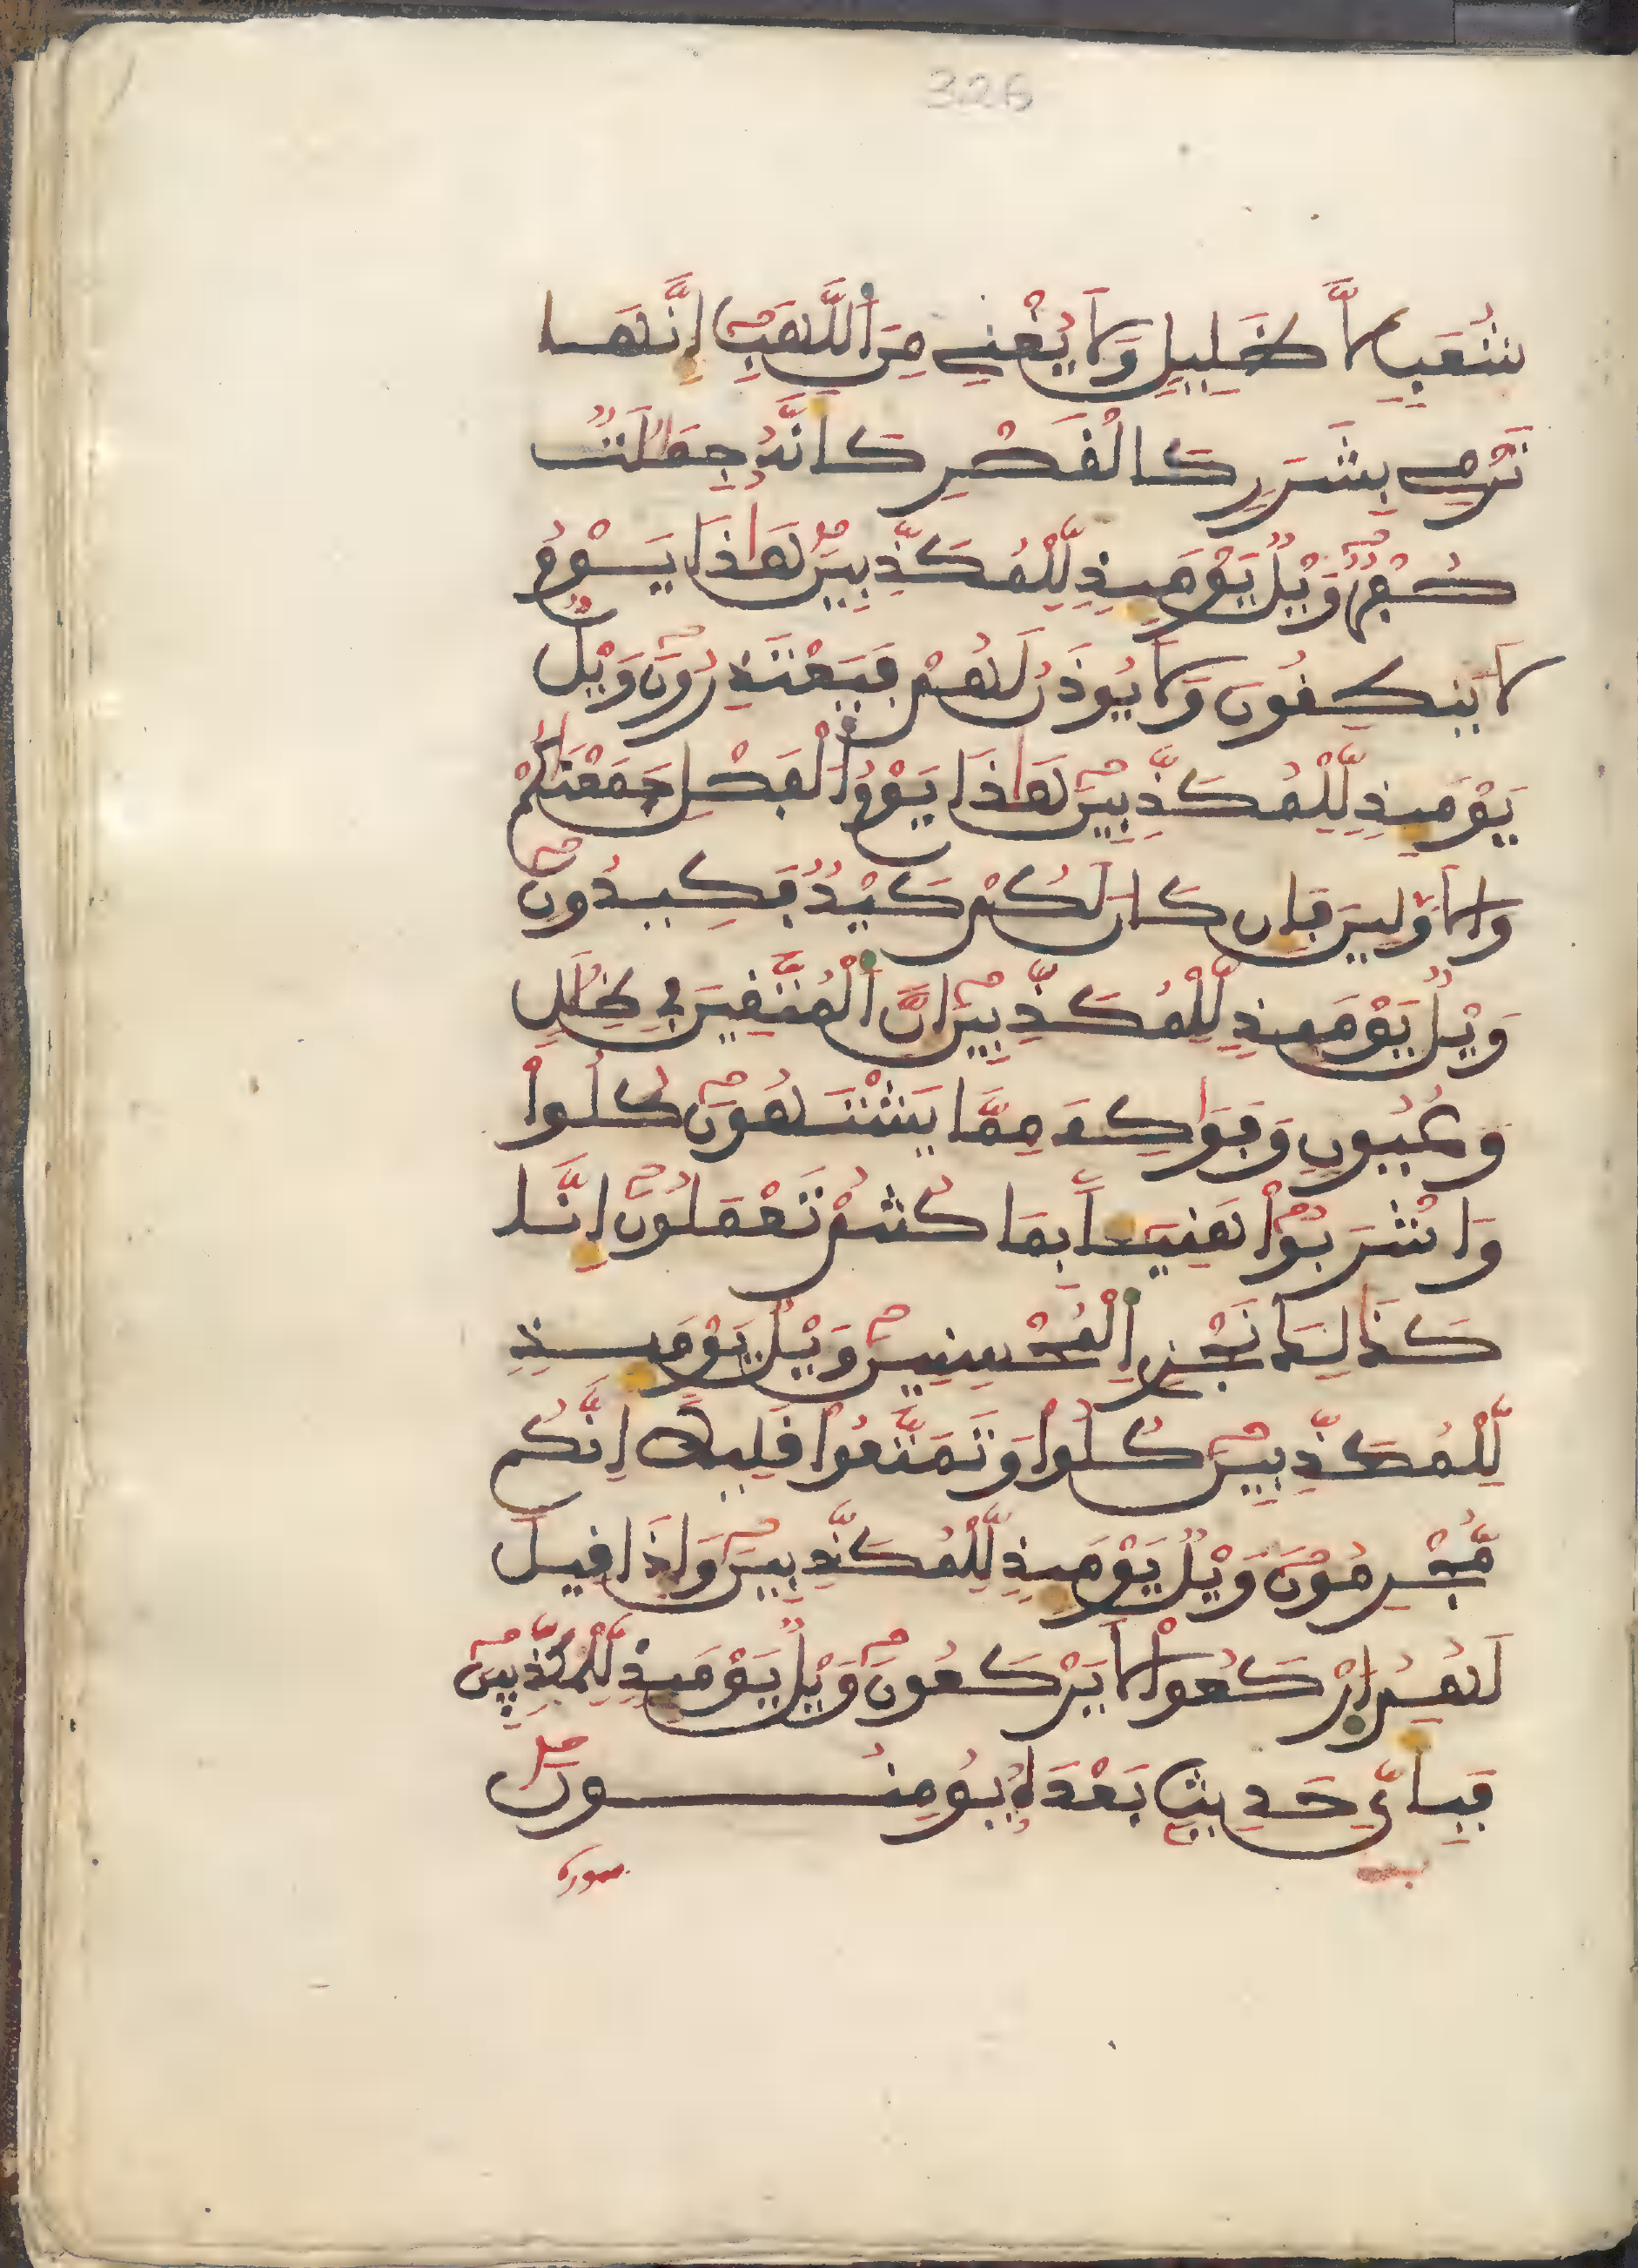 326
شُعَبٍ لَّا ظَلِيلٍ وَلَا يُغْنِے مِنَ اَللَّهَبِ إِنَّهَا
تَرْمِے بِشَرَرٍ كَالْقَصْرِ كَأَنَّهُ جِمَٰلَٰتٌ
صُفْرٌ وَيْلٌ يَوْمَئِذٍ لِّلْمُكَذِّبِينَ هَٰذَا يَوْمُ
لَا يَنطِقُونَ وَلَا يُوذَنُ لَهُمْ فَيَعْتَذِرُونَ وَيْلٌ
يَوْمَئِذٍ لِّلْمُكَذِّبِينَ هَٰذَا يَوْمُ اُلْفَصْلِ جَمَعْنَٰكُمْ
وَالَاوَّلِينَ فَإِن كَانَ لَكُمْ كَيْدٌ فَكِيدُونِ
وَيْلٌ يَوْمَئِذٍ لِّلْمُكَذِّبِينَ إِنَّ اَلْمُتَّقِينَ فِے ظِلَٰلٍ
وَعُيُونٍ وَفَوَٰكِهَ مِمَّا يَشْتَهُونَ كُلُوا
وَاشْرَبُوا هَنِيـًٔا بِمَا كُنتُمْ تَعْمَلُونَ إِنَّا
كَذَٰلِكَ نَجْزِے اِلْمُحْسِنِينَ وَيْلٌ يَوْمَئِذٍ
لِّلْمُكَذِّبِينَ كُلُوا وَتَمَتَّعُوا قَلِيلًا إِنَّكُم
مُّجْرِمُونَ وَيْلٌ يَوْمَئِذٍ لِّلْمُكَذِّبِينَ وَإِذَا قِيلَ
لَهُمُ اُرْكَعُوا لَا يَرْكَعُونَ وَيْلٌ يَوْمَئِذٍ لِّلْمُكَذِّبِينَ
فَبِأَيِّ حَدِيثٍ بَعْدَهُ يُومِنُونَ
سورة